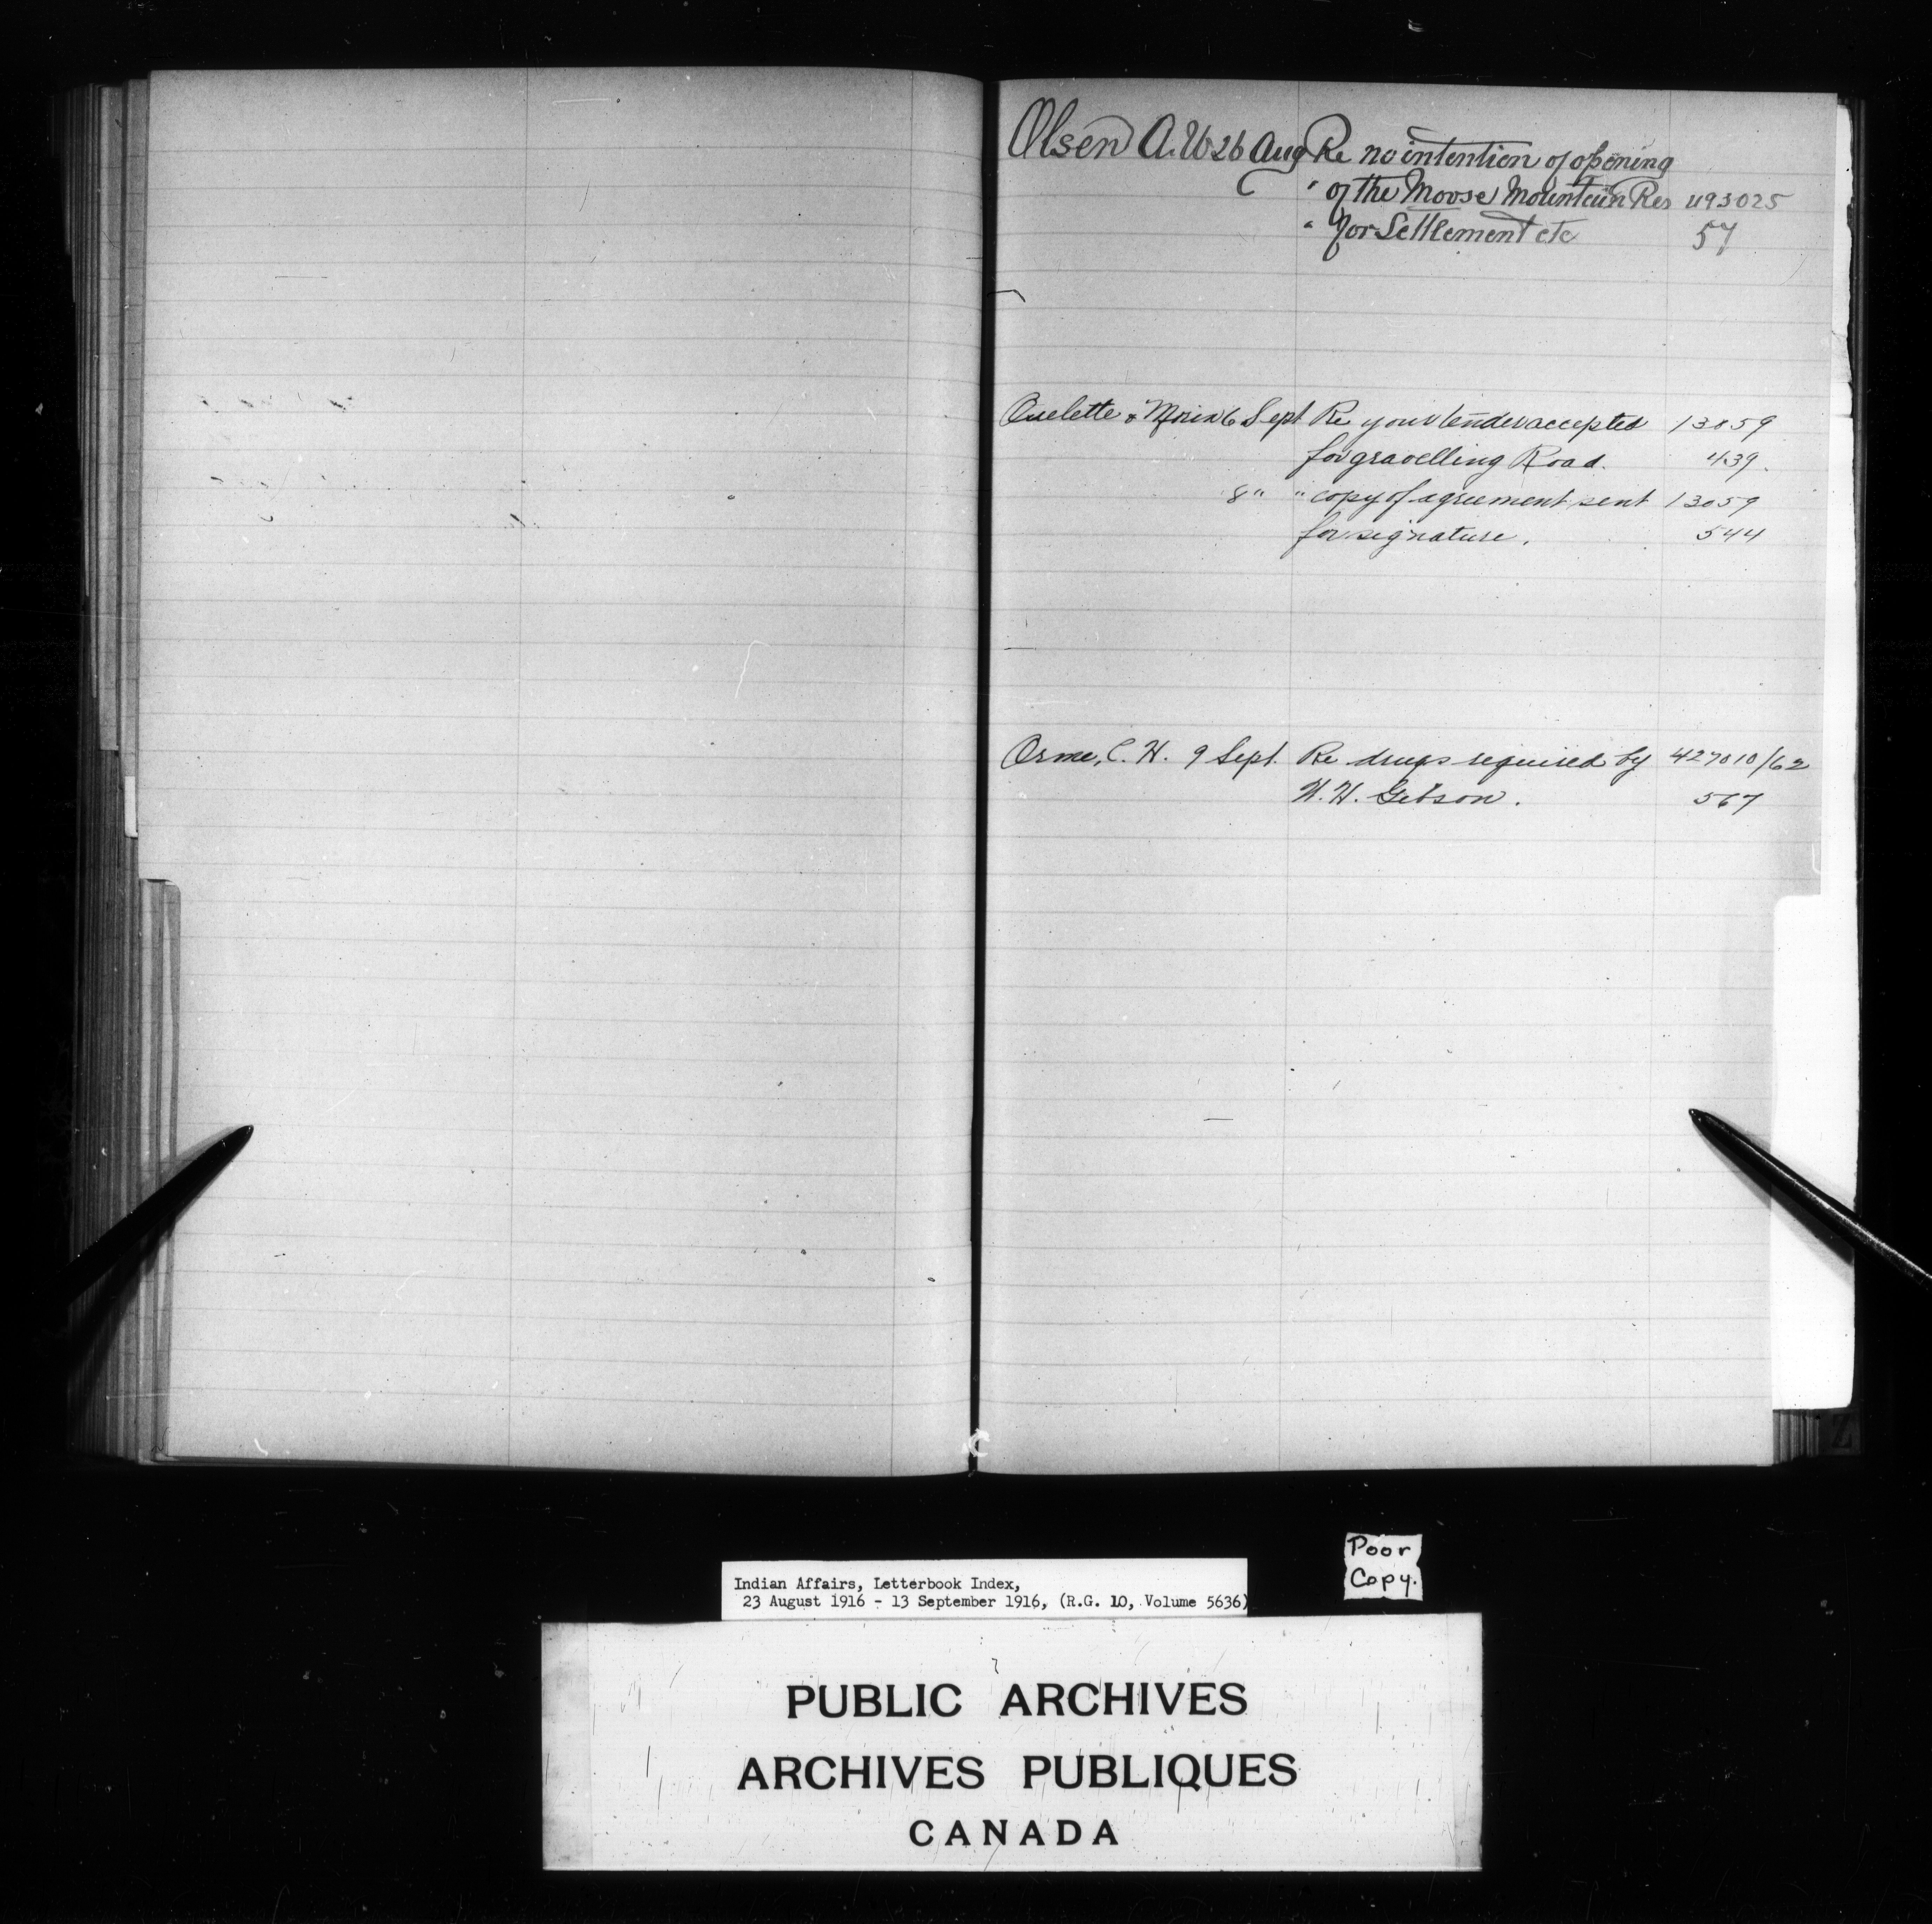 Olsen A. W 26 Aug Re no intention of opening
" of the Moose Mountain Res 493025
" for Settlement etc 57
Ouelette & Morin 6 Sept Re your tender accepted 13059
for gravelling Road. 439.
8 " " copy of agreement sent 13059
for signature. 544
Orme, C. H. 9 Sept. Re drugs required by 427010/62
W. H. Gibson. 567
Z
Poor
Copy.
Indian Affairs, Letterbook Index,
23 August 1916 - 13 September 1916, (R.G. 10, Volume 5636)
PUBLIC ARCHIVES
ARCHIVES PUBLIQUES
CANADA